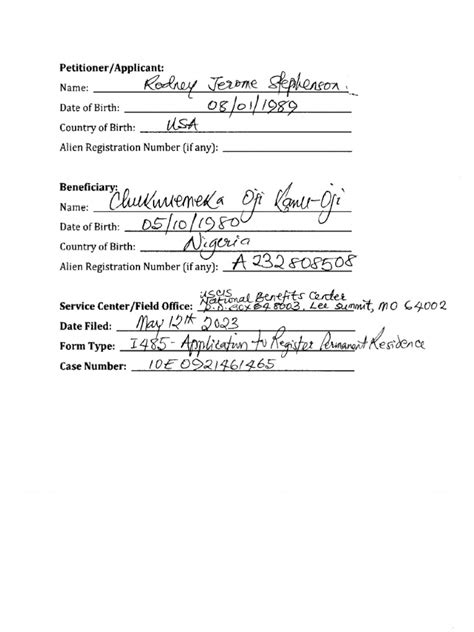 Petitioner/Applicant:
Name: Rodney Jerome Stephenson.
Date of Birth: 08/01/1989
Country of Birth: USA
Alien Registration Number (if any):
Beneficiary:
Name: Chukwuemeka Oji Kanu-Oji
Date of Birth: 05/10/1980
Country of Birth: Nigeria
Alien Registration Number (if any): A 232808508
USCIS
National Benefits Center
Service Center/Field Office: P.O. Box 648003, Lee Summit, MO 64002
Date Filed: May 12th 2023
Form Type: I485 - Application to Register Permanent Residence
Case Number: IOE 0921461465